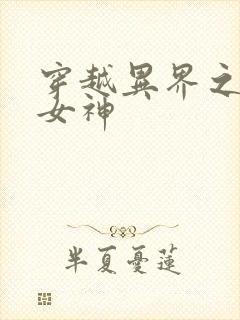 穿越異界之
女神
半夏憂蓮